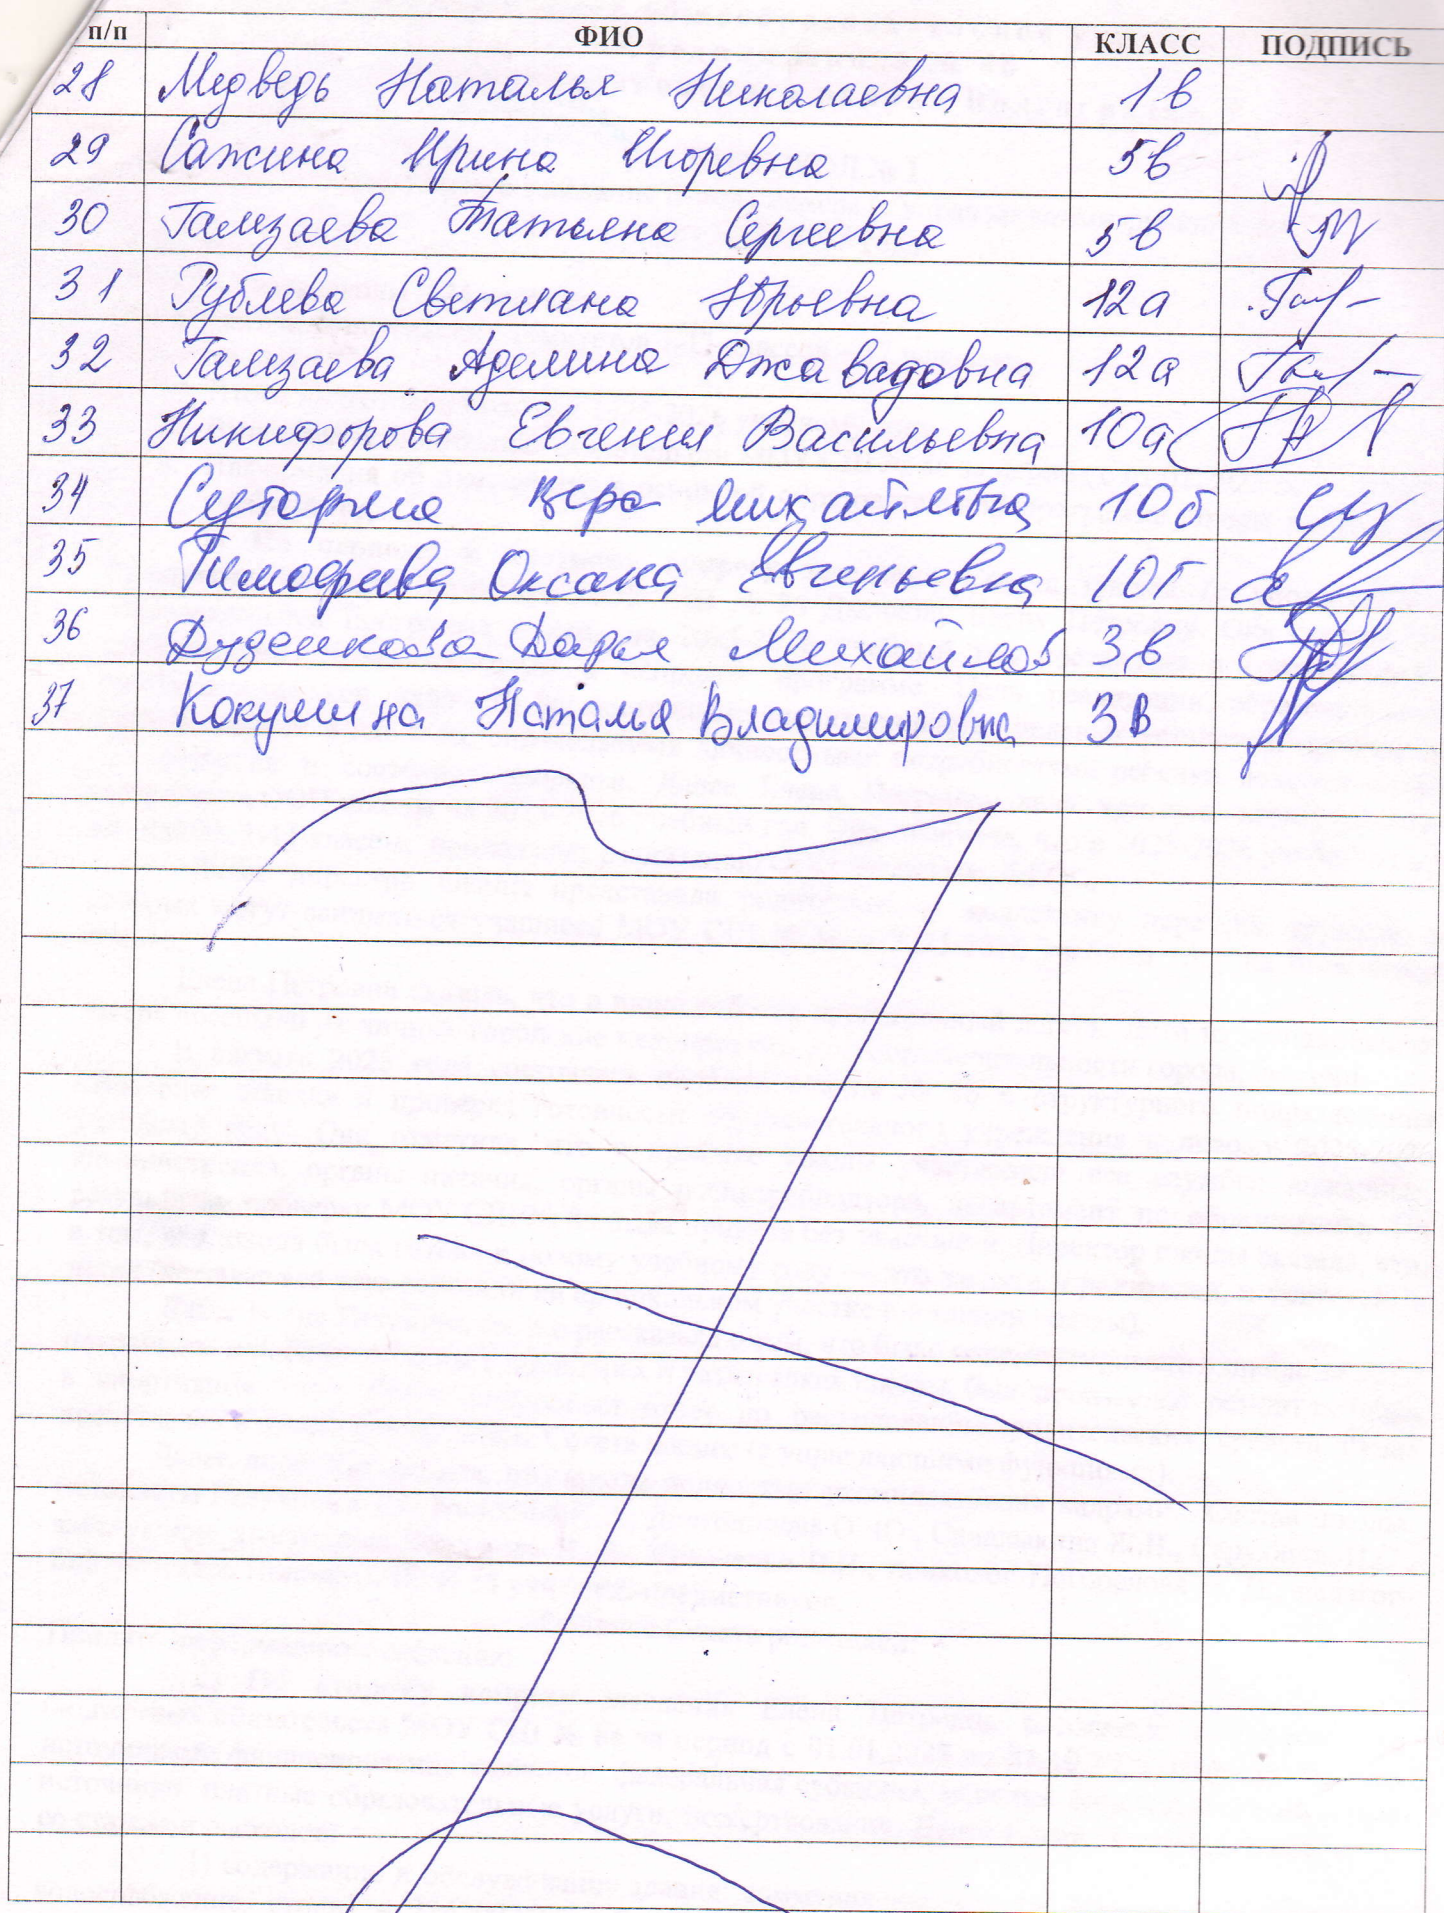 п/п ФИО КЛАСС ПОДПИСЬ
28 Медведь Наталья Николаевна 1в
29 Сажина Ирина Игоревна 5в
30 Гамзаева Татьяна Сергеевна 5в
31 Рублева Светлана Юрьевна 12а
32 Гамзаева Аделина Джавадовна 12а
33 Никифорова Евгения Васильевна 10а
34 Вера 10б
35 Оксана Евгеньевна 10г
36 Дарья 3в
37 Наталья Владимировна 3в